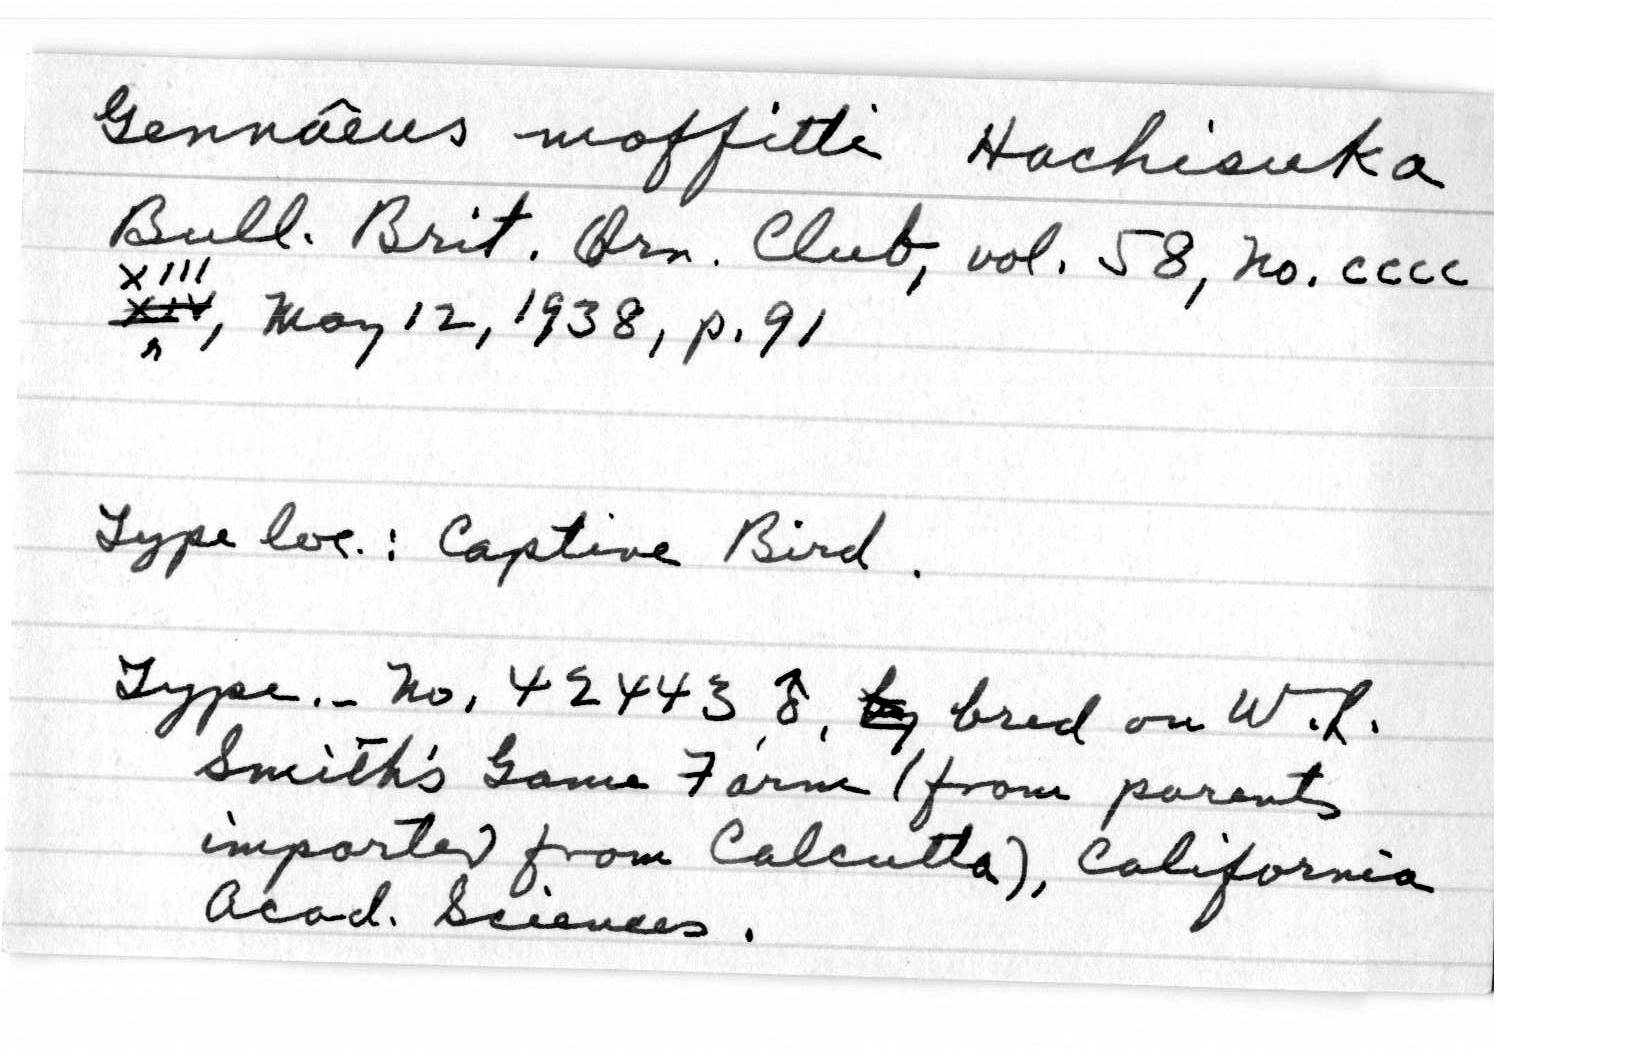 Gennâeus moffitti Hachisuka
Bull. Brit. Orn. Club, vol. 58, No. cccc
XIII
XIV, May 12, 1938, p. 91
Type loc.: Captive Bird.
Type.- No. 42443 ♂, by bred on W.L.
Smith's Game Farm (from parents
imported from Calcutta), California
Acad. Sciences.